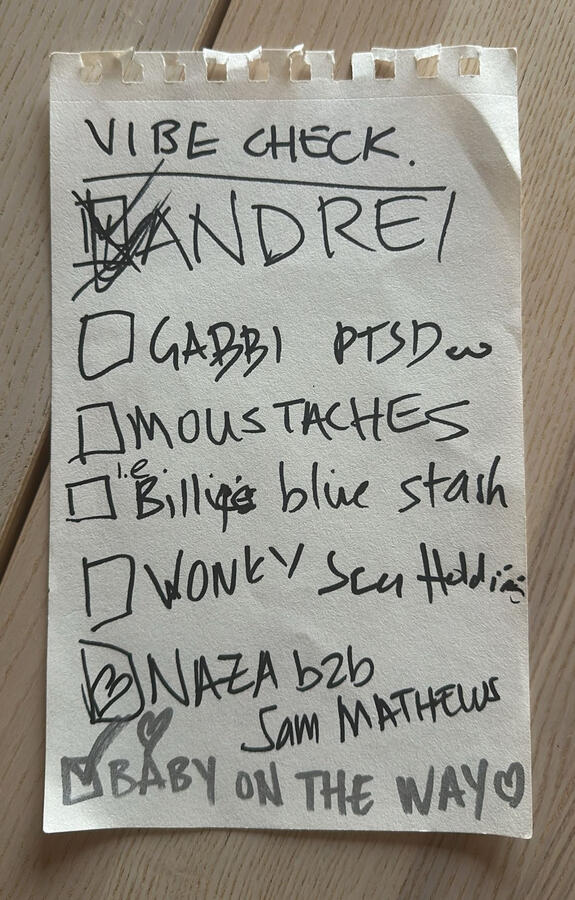 VIBE CHECK.
ANDREI
GABBI PTSD
MOUSTACHES
i.e
Billie's blue stash
WONKY
NAZA b2b
Sam MATHEWS
BABY ON THE WAY